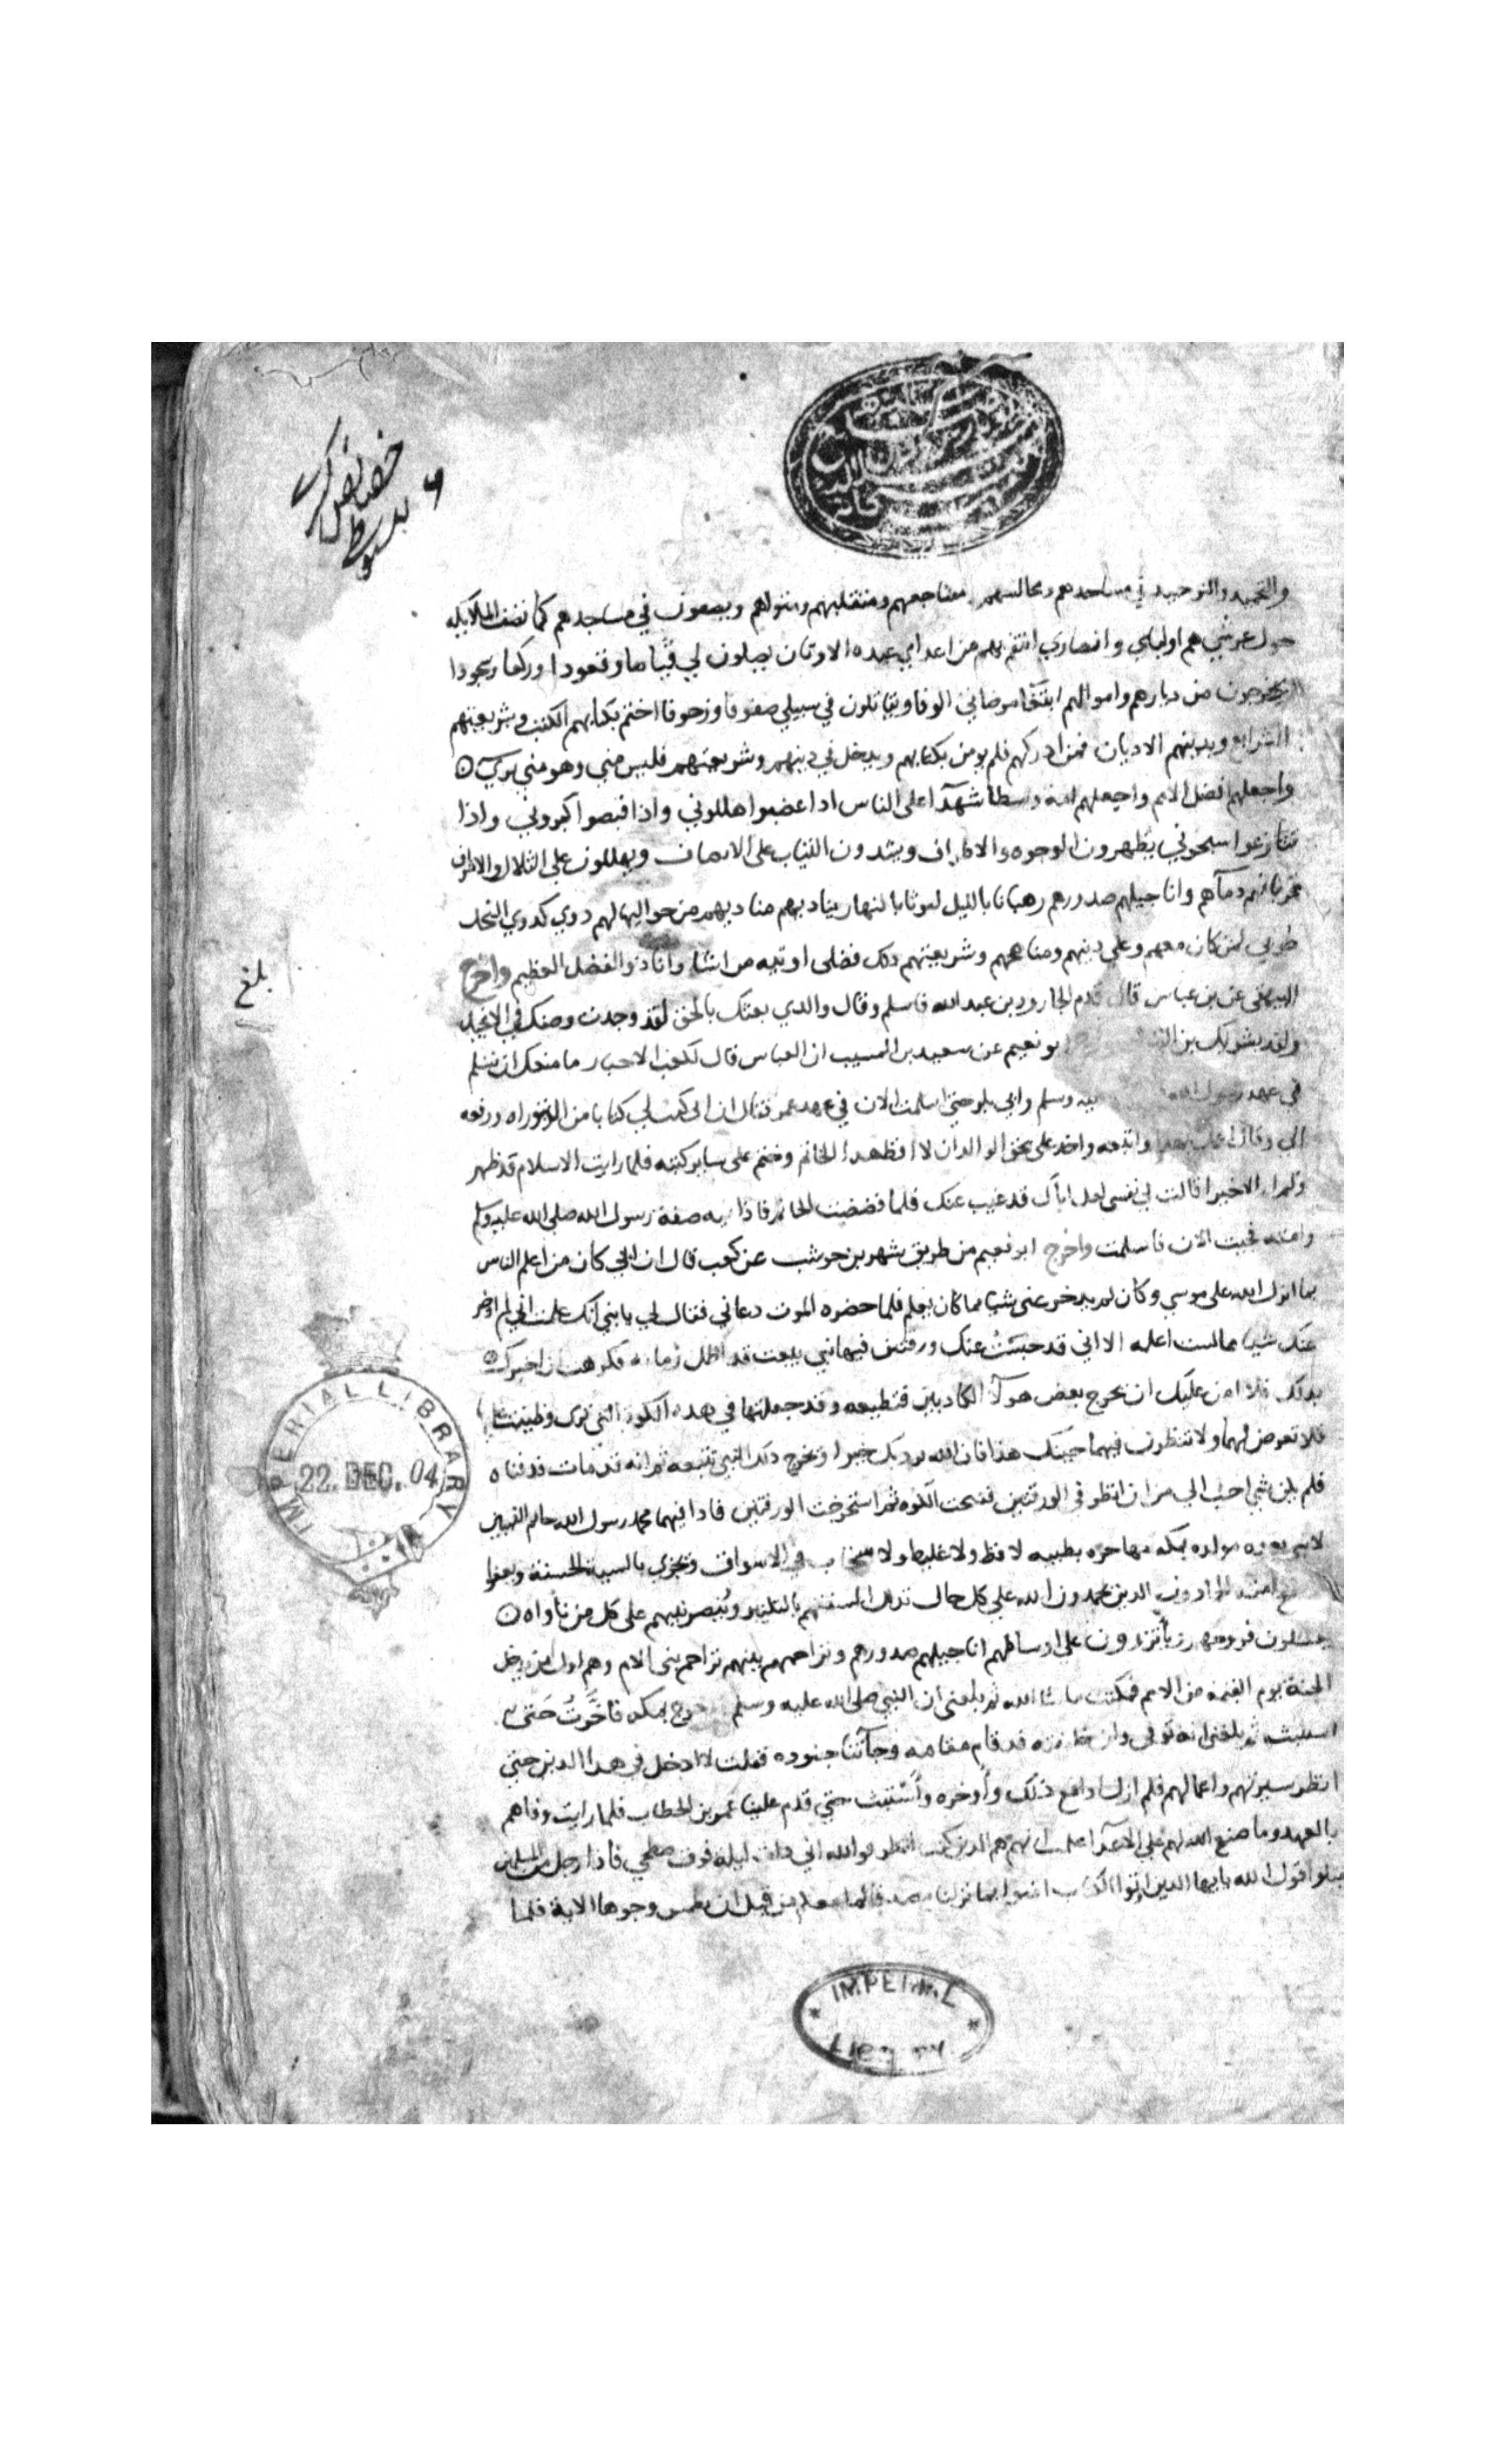 خصائص كبرى
سيوطي
والتحميد والتوحيد في مساجدهم ومجالسهم ومضاجعهم ومنقلبهم ومثواهم ويصفون في مساجدهم كما تصف الملايكة
حول عرشي هم اوليائي وانصاري انتقم بهم من اعداي عبدة الاوثان يصلون لي قياما وقعودا وركعا وسجودا
ويخرجون من ديارهم واموالهم ابتغا مرضاتي الوفا ويقاتلون في سبيلي صفوفا وزحوفا اختم بكتابهم الكتب وبشريعتهم
الشرايع وبدينهم الاديان فمن ادركهم فلم يومن بكتابهم ويدخل في دينهم وشريعتهم فليس مني وهو مني بري
واجعلهم افضل الامم واجعلهم امة وسطا شهدآ على الناس اذا غضبوا هللوني واذا قبضوا كبروني واذا
تنازعوا سبحوني يطهرون الوجوه والاطراف ويشدون الثياب على الانصاف ويهللون على التلال والاشراف
قربانهم دمآهم واناجيلهم صدورهم رهبانا بالليل ليوثا بالنهار يناديهم مناديهم من حواليها لهم دوي كدوي النحل
طوبي لمن كان معهم وعلي دينهم ومناهجهم وشريعتهم ذلك فضلي اوتيه من اشا وانا ذو الفضل العظيم واخرج
بلغ
البيهقي عن بن عباس قال قدم الجارود بن عبد الله فاسلم وقال والذي بعثك بالحق لقد وجدت وصفك في الانجيل
ولقد بشر بك بن ابو نعيم عن سعيد بن المسيب ان العباس قال لكعب الاحبار ما منعك ان تسلم
في عهد رسول الله وسلم وابي بكر حتى اسلمت الان في عهد عمر فقال ان ابي كتب لي كتابا من التوراه ودفعه
الي وقال اعمل بهذا واتبعه واخذ علي بحق الوالد ان لا افض هذا الخاتم وختم على ساير كتبه فلما رايت الاسلام قد ظهر
ولم ار الا خيرا قالت لي نفسي لعل اباك قد غيب عنك فلما فضضت الخاتم فاذا فيه صفة رسول الله صلى الله عليه وسلم
وامته فجيت الان فاسلمت واخرج ابو نعيم من طريق شهر بن حوشب عن كعب قال ان ابي كان من اعلم الناس
بما انزل الله على موسي وكان لم يدخر عني شيا مما كان يعلم فلما حضره الموت دعاني فقال لي يا بني انك علمت اني لم ادخر
عنك شيا مما كنت اعلمه الا اني قد حبست عنك ورقتين فيهما نبي يبعث قد اظل زمانه فكرهت ان اخبرك
بذلك فلا امن عليك ان يخرج بعض هولآ الكاذبين فتطيعه وقد جعلتها في هذه الكوة التي ترى وطينت عليها
فلا تعرض لهما ولا تنظرن فيهما حينك هذا فان الله يرد بك خيرا ويخرج ذلك النبي تتبعه ثم انه قد مات فدفناه
فلم يكن شي احب الي من ان انظر في الورقتين ففتحت الكوه ثم استخرجت الورقتين فاذا فيهما محمد رسول الله خاتم النبيين
لا نبي بعده مولده بمكه مهاجره بطيبه لا فظ ولا غليظ ولا سخاب في الاسواق ويجزي بالسيية الحسنة ويعفوا
امته الحمادون الذين يحمدون الله علي كل حال تذلل السنتهم بالتكبير ويُنصر نبيهم على كل من ناواه
يغسلون فروجهم ويأتزرون علي اوساطهم اناجيلهم صدورهم وتراحمهم بينهم تراحم بني الام وهم اول من يدخل
الجنة يوم القيمة من الامم فمكثت ما شا الله ثم بلغني ان النبي صلى الله عليه وسلم خرج بمكه فاخرت حتى
استثبت ثم بلغني انه توفي وان خليفته قد قام مقامه وجآتنا جنوده فقلت لا ادخل في هذا الدين حتي
انظر سيرتهم واعمالهم فلم ازل ادافع ذلك وأوخره وأستثبت حتي قدم علينا عمر بن الخطاب فلما رايت وفاهم
بالعهد وما صنع الله لهم علي الاعدآ علمت انهم هم الذين كنت انتظر فوالله اني ذات ليلة فوق سطحي فاذا رجل من المسلمين
يتلوا قول الله يا ايها الذين اوتوا الكتاب امنوا بما نزلنا مصدقا لما معكم من قبل ان نطمس وجوها الاية فلما
IMPERIAL LIBRARY
22. DEC. 04
IMPERIAL
LIBRARY